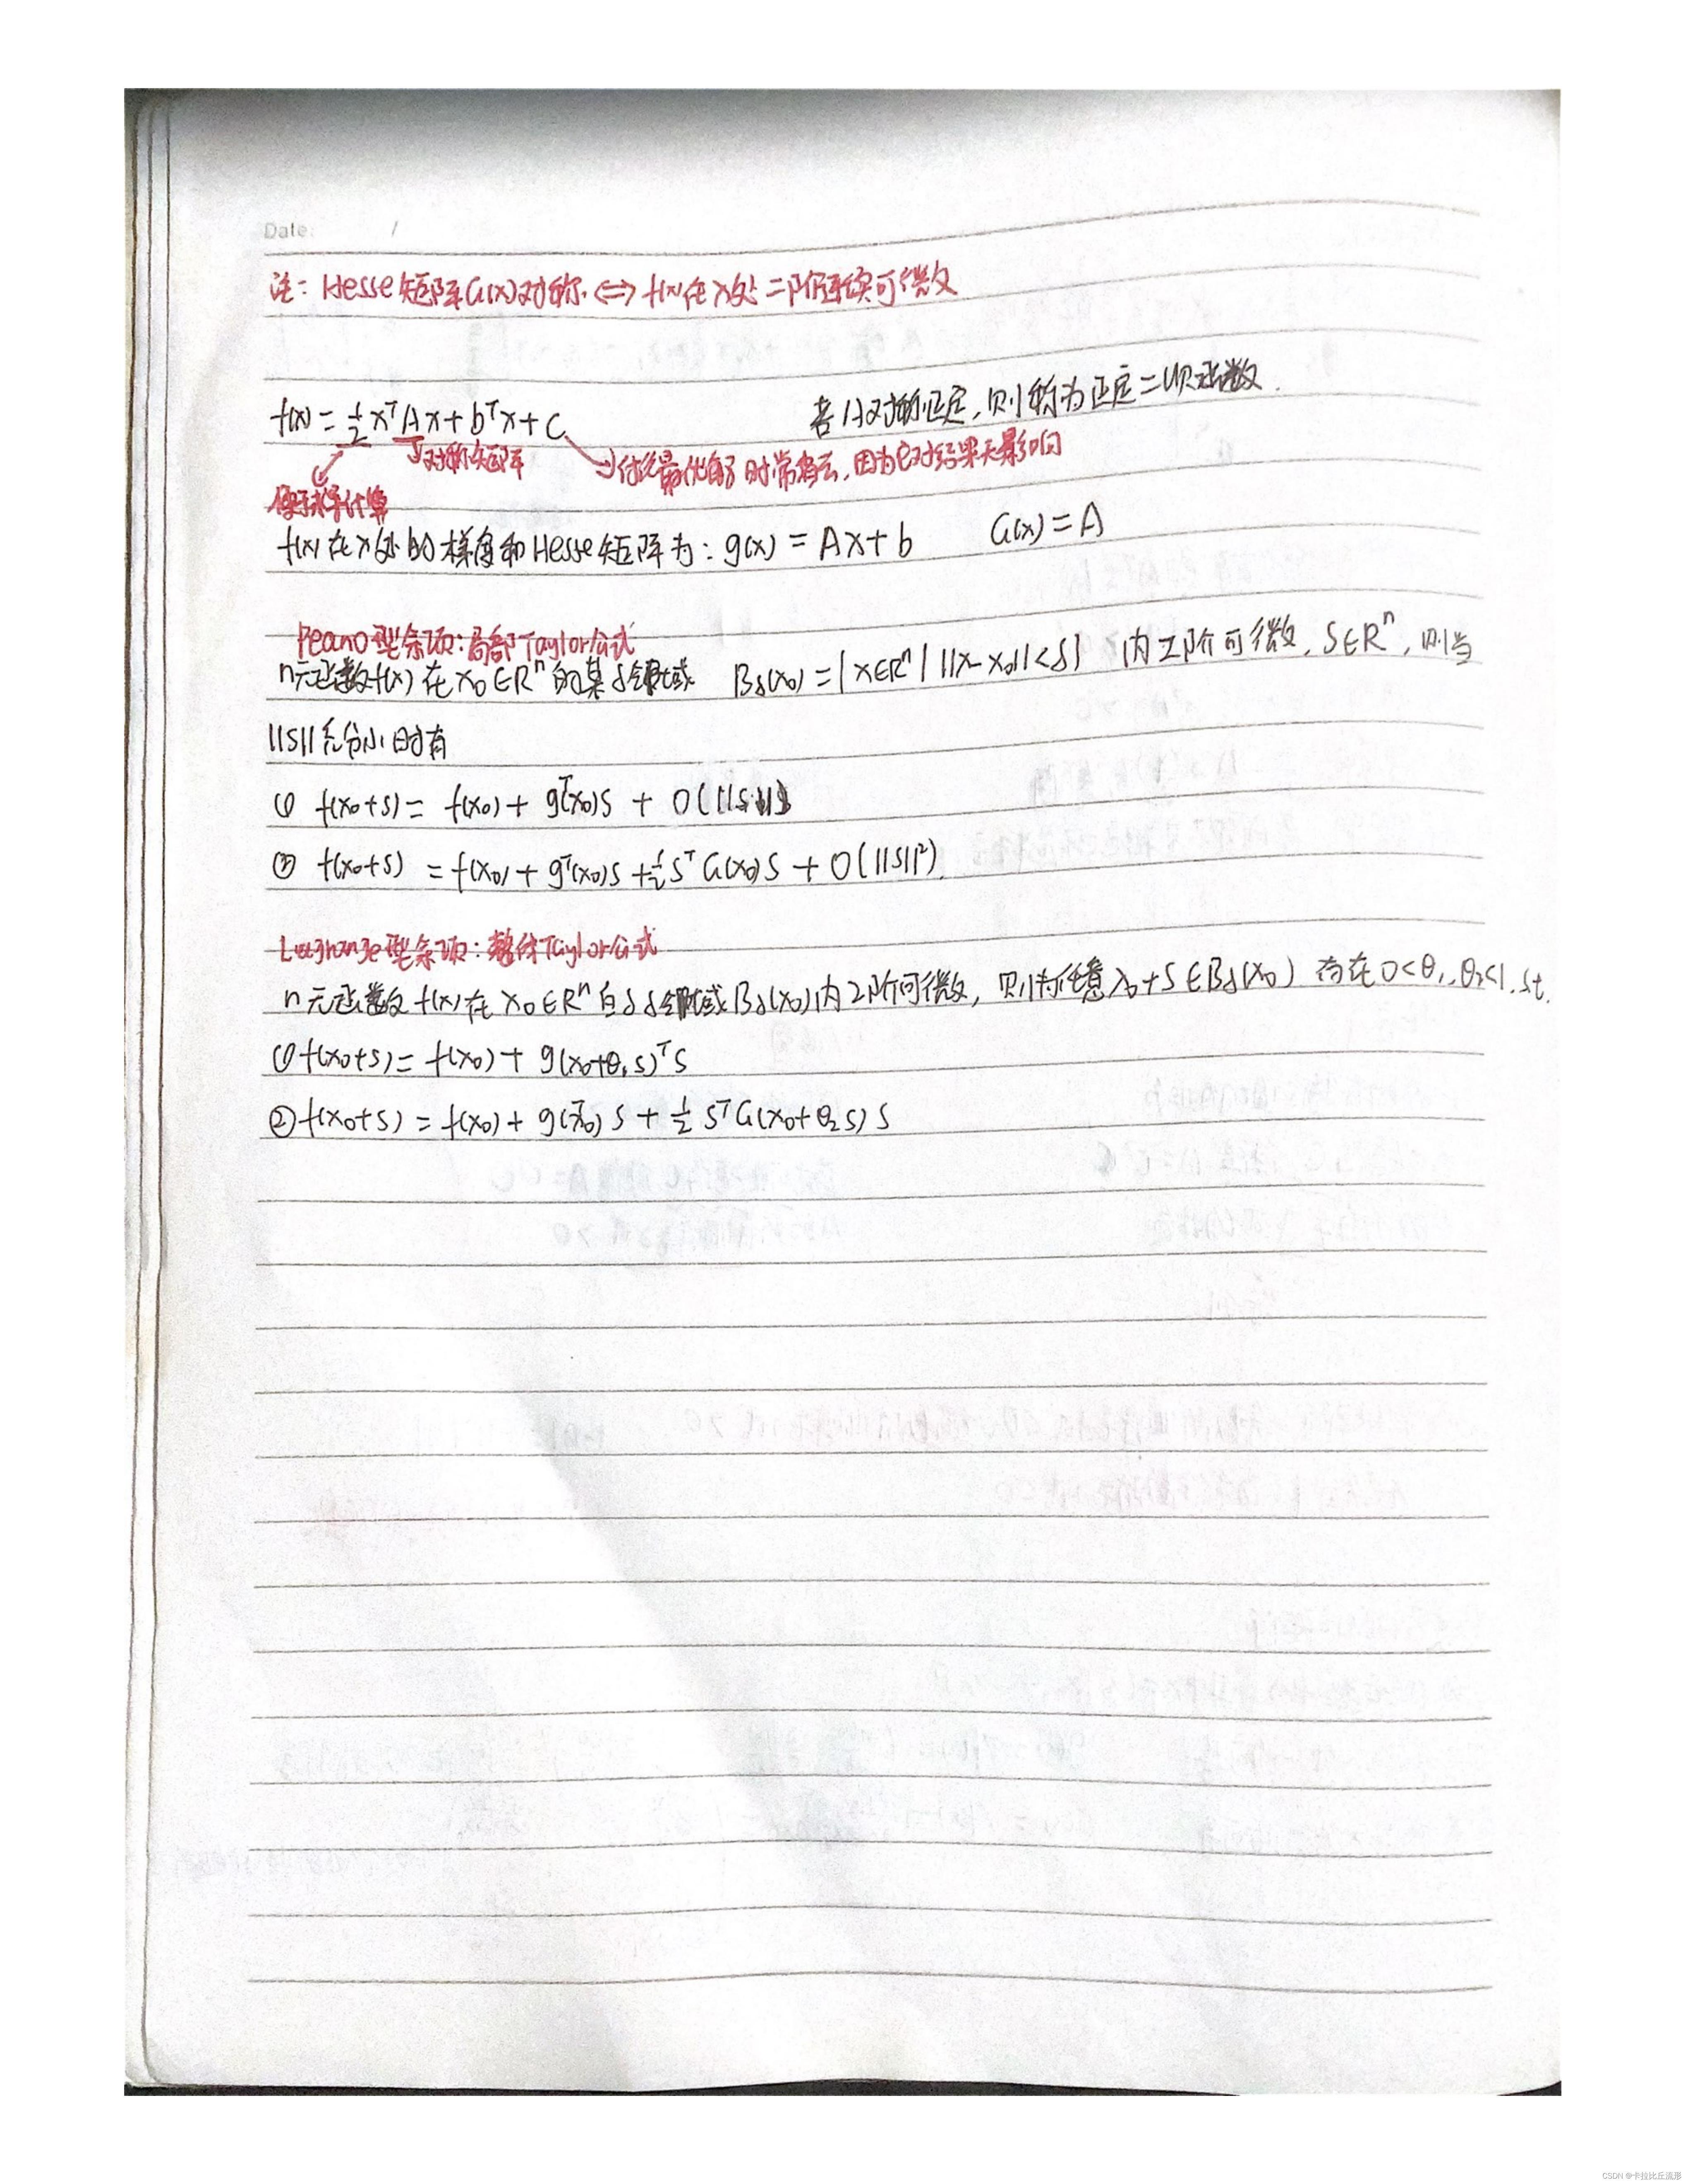 Date: /
注: Hesse矩阵G(x)对称. ⟺ f(x)在x处二阶连续可微
f(x) = ½ xᵀAx + bᵀx + C 若A对称正定, 则称为正定二次函数.
→对称矩阵 →讨论最优解时常省去, 因为它对结果无影响
便于求导计算
f(x)在x处的梯度和Hesse矩阵为: g(x) = Ax+b G(x) = A
Peano型余项: 局部Taylor公式
n元函数f(x)在x₀∈Rⁿ的某δ邻域 Bδ(x₀) = {x∈Rⁿ | ||x-x₀||<δ} 内2阶可微, S∈Rⁿ, 则当
||S||充分小时有
① f(x₀+s) = f(x₀) + gᵀ(x₀)S + O(||S||)
② f(x₀+s) = f(x₀) + gᵀ(x₀)S + ½ Sᵀ G(x₀) S + O(||S||²).
Lagrange型余项: 整体Taylor公式
n元函数f(x)在x₀∈Rⁿ的δ邻域Bδ(x₀)内2阶可微, 则对任意x₀+S∈Bδ(x₀) 存在0<θ₁,θ₂<1, st.
① f(x₀+s) = f(x₀) + g(x₀+θ₁s)ᵀS
② f(x₀+s) = f(x₀) + gᵀ(x₀) S + ½ Sᵀ G(x₀+θ₂s) S
CSDN @卡拉比丘流形